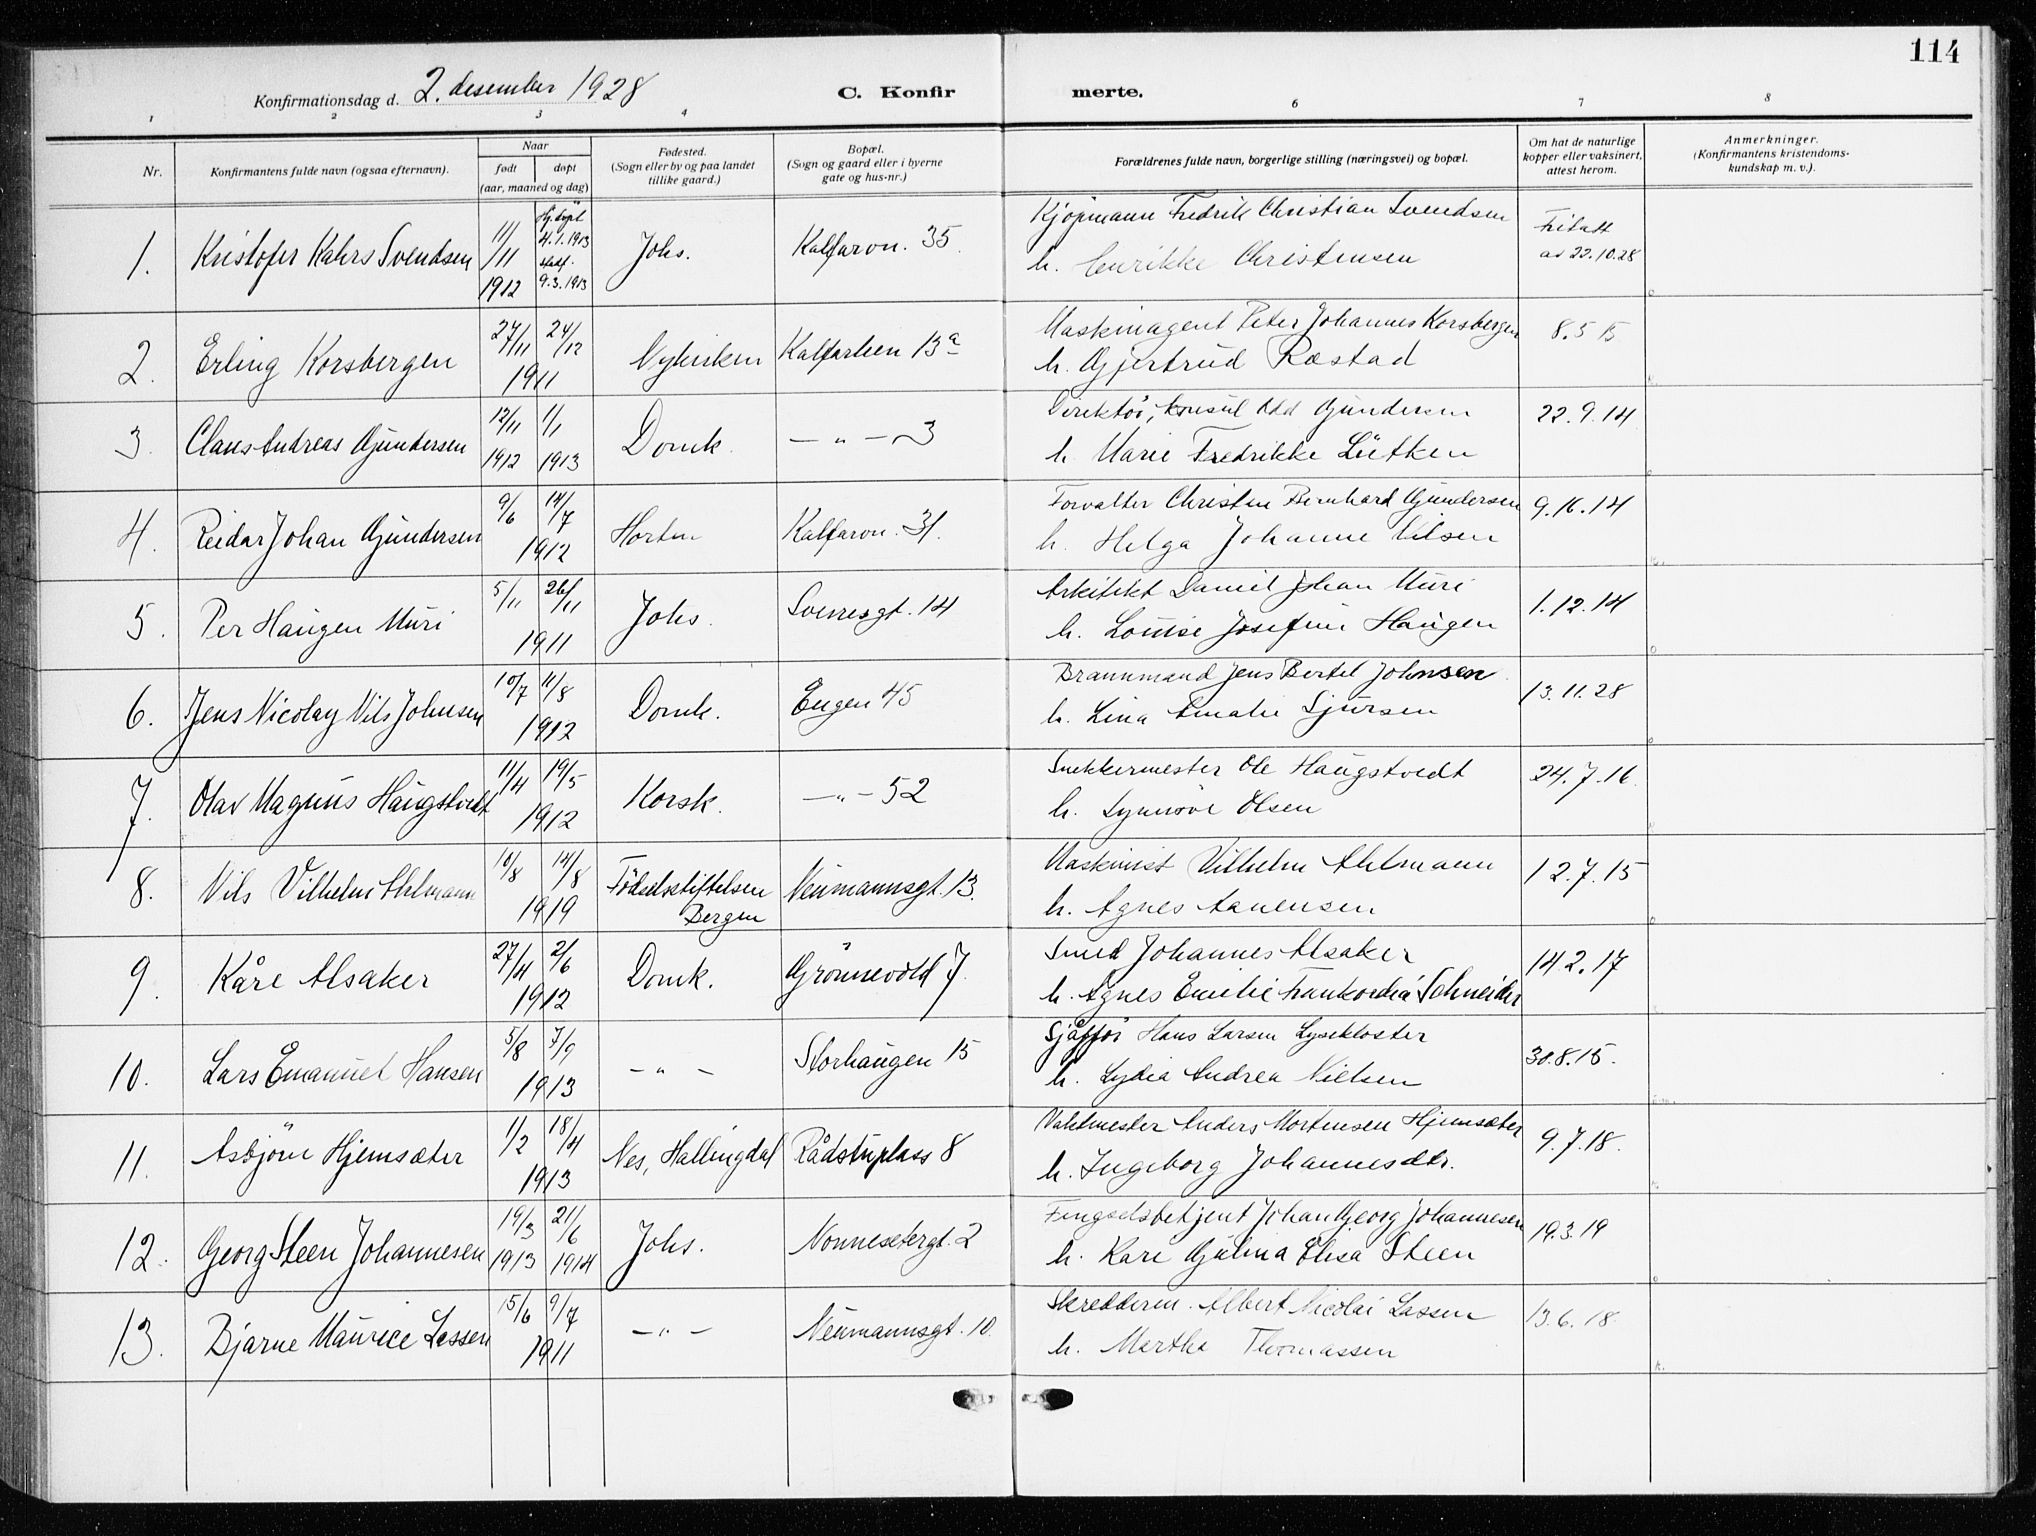 114
Konfirmationsdag d. 2. desember 1928 C. Konfirmerte.
1 2 3 4 6 7 8
Nr. Konfirmantens fulde navn (ogsaa efternavn). Naar født døpt (aar, maaned og dag) Fødested. (Sogn eller by og paa landet tillike gaard.) Bopæl. (Sogn og gaard eller i byerne gate og hus-nr.) Forældrenes fulde navn, borgerlige stilling (næringsvei) og bopæl. Om hat de naturlige kopper eller vaksinert, attest herom. Anmerkninger. (Konfirmantens kristendoms-kundskap m. v.).
1. Kristofer Kahrs Svendsen 11/11 1912 Hj.døpt 4.1.1913 Stadf. 9.3.1913 Johs. Kalfarvn. 35 Kjøpmann Fredrik Christian Svendsen Fritatt
h. Henrikke Christensen av 22.10.28
2. Erling Korsbergen 27/11 24/12 1911 Nykirken Kalfarlien 13a Maskinagent Peter Johannes Korsbergen 8.5 15
h. Gjertrud Ræstad
3. Claus Andreas Gundersen 12/11 1912 1/1 1913 Domk. — " — 3 Direktör, konsul Odd Gundersen 22.9.14
h. Marie Fredrikke Lütken
4. Reidar Johan Gundersen 9/6 14/7 1912 Horten Kalfarvn. 31. Forvalter Christen Bernhard Gundersen 9.16.14
h. Helga Johanne Nilsen
5. Per Haugen Muri 5/11 26/11 1911 Johs. Sverresgt. 14 Arkitekt Daniel Johan Muri 1.12.14
h. Louise Josefine Haugen
6. Jens Nicolay Nils Johnsen 10/7 11/8 1912 Domk. Engen 45 Brannmand Jens Bertel Johnsen 13.11.28
h. Lina Amalie Sjursen
7. Olav Magnus Haugstvedt 11/4 19/5 1912 Korsk. — " — 52 Snekkermester Ole Haugstvedt 24.7.16.
h. Synnöve Olsen
8. Nils Vilhelm Ahlmann 10/8 14/8 1919 Födselsstiftelsen Bergen Neumannsgt. 13. Maskinist Vilhelm Ahlmann 12.7.15
h. Agnes Aanensen
9. Kåre Alsaker 27/4 2/6 1912 Domk. Grönnevold 7 Smed Johannes Alsaker 14.2.17
h. Agnes Emilie Frankordia Schneider
10. Lars Emanuel Hansen 5/8 7/9 1913 — " — Storhaugen 15 Sjåfför Hans Larsen Lysekloster 30.8.15.
h. Lydia Andrea Nielsen
11. Asbjörn Hjemsæter 1/2 18/4 1913 Nes, Hallingdal Rådstuplass 8 Vaktmester Anders Mortensen Hjemsæter 9.7.18.
h. Ingeborg Johannesdtr.
12. Georg Steen Johannesen 19/3 1913 21/6 1914 Johs. Nonnesetergt. 2 Fengselsbetjent Johan Georg Johannesen 19.3.19
h. Kare Gjulina Elisa Steen
13. Bjarne Maurice Lassen 15/6 9/7 1911 — " — Neumannsgt. 10. Skreddersv. Albert Nicolai Lassen 13.6.18
h. Martha Thomassen